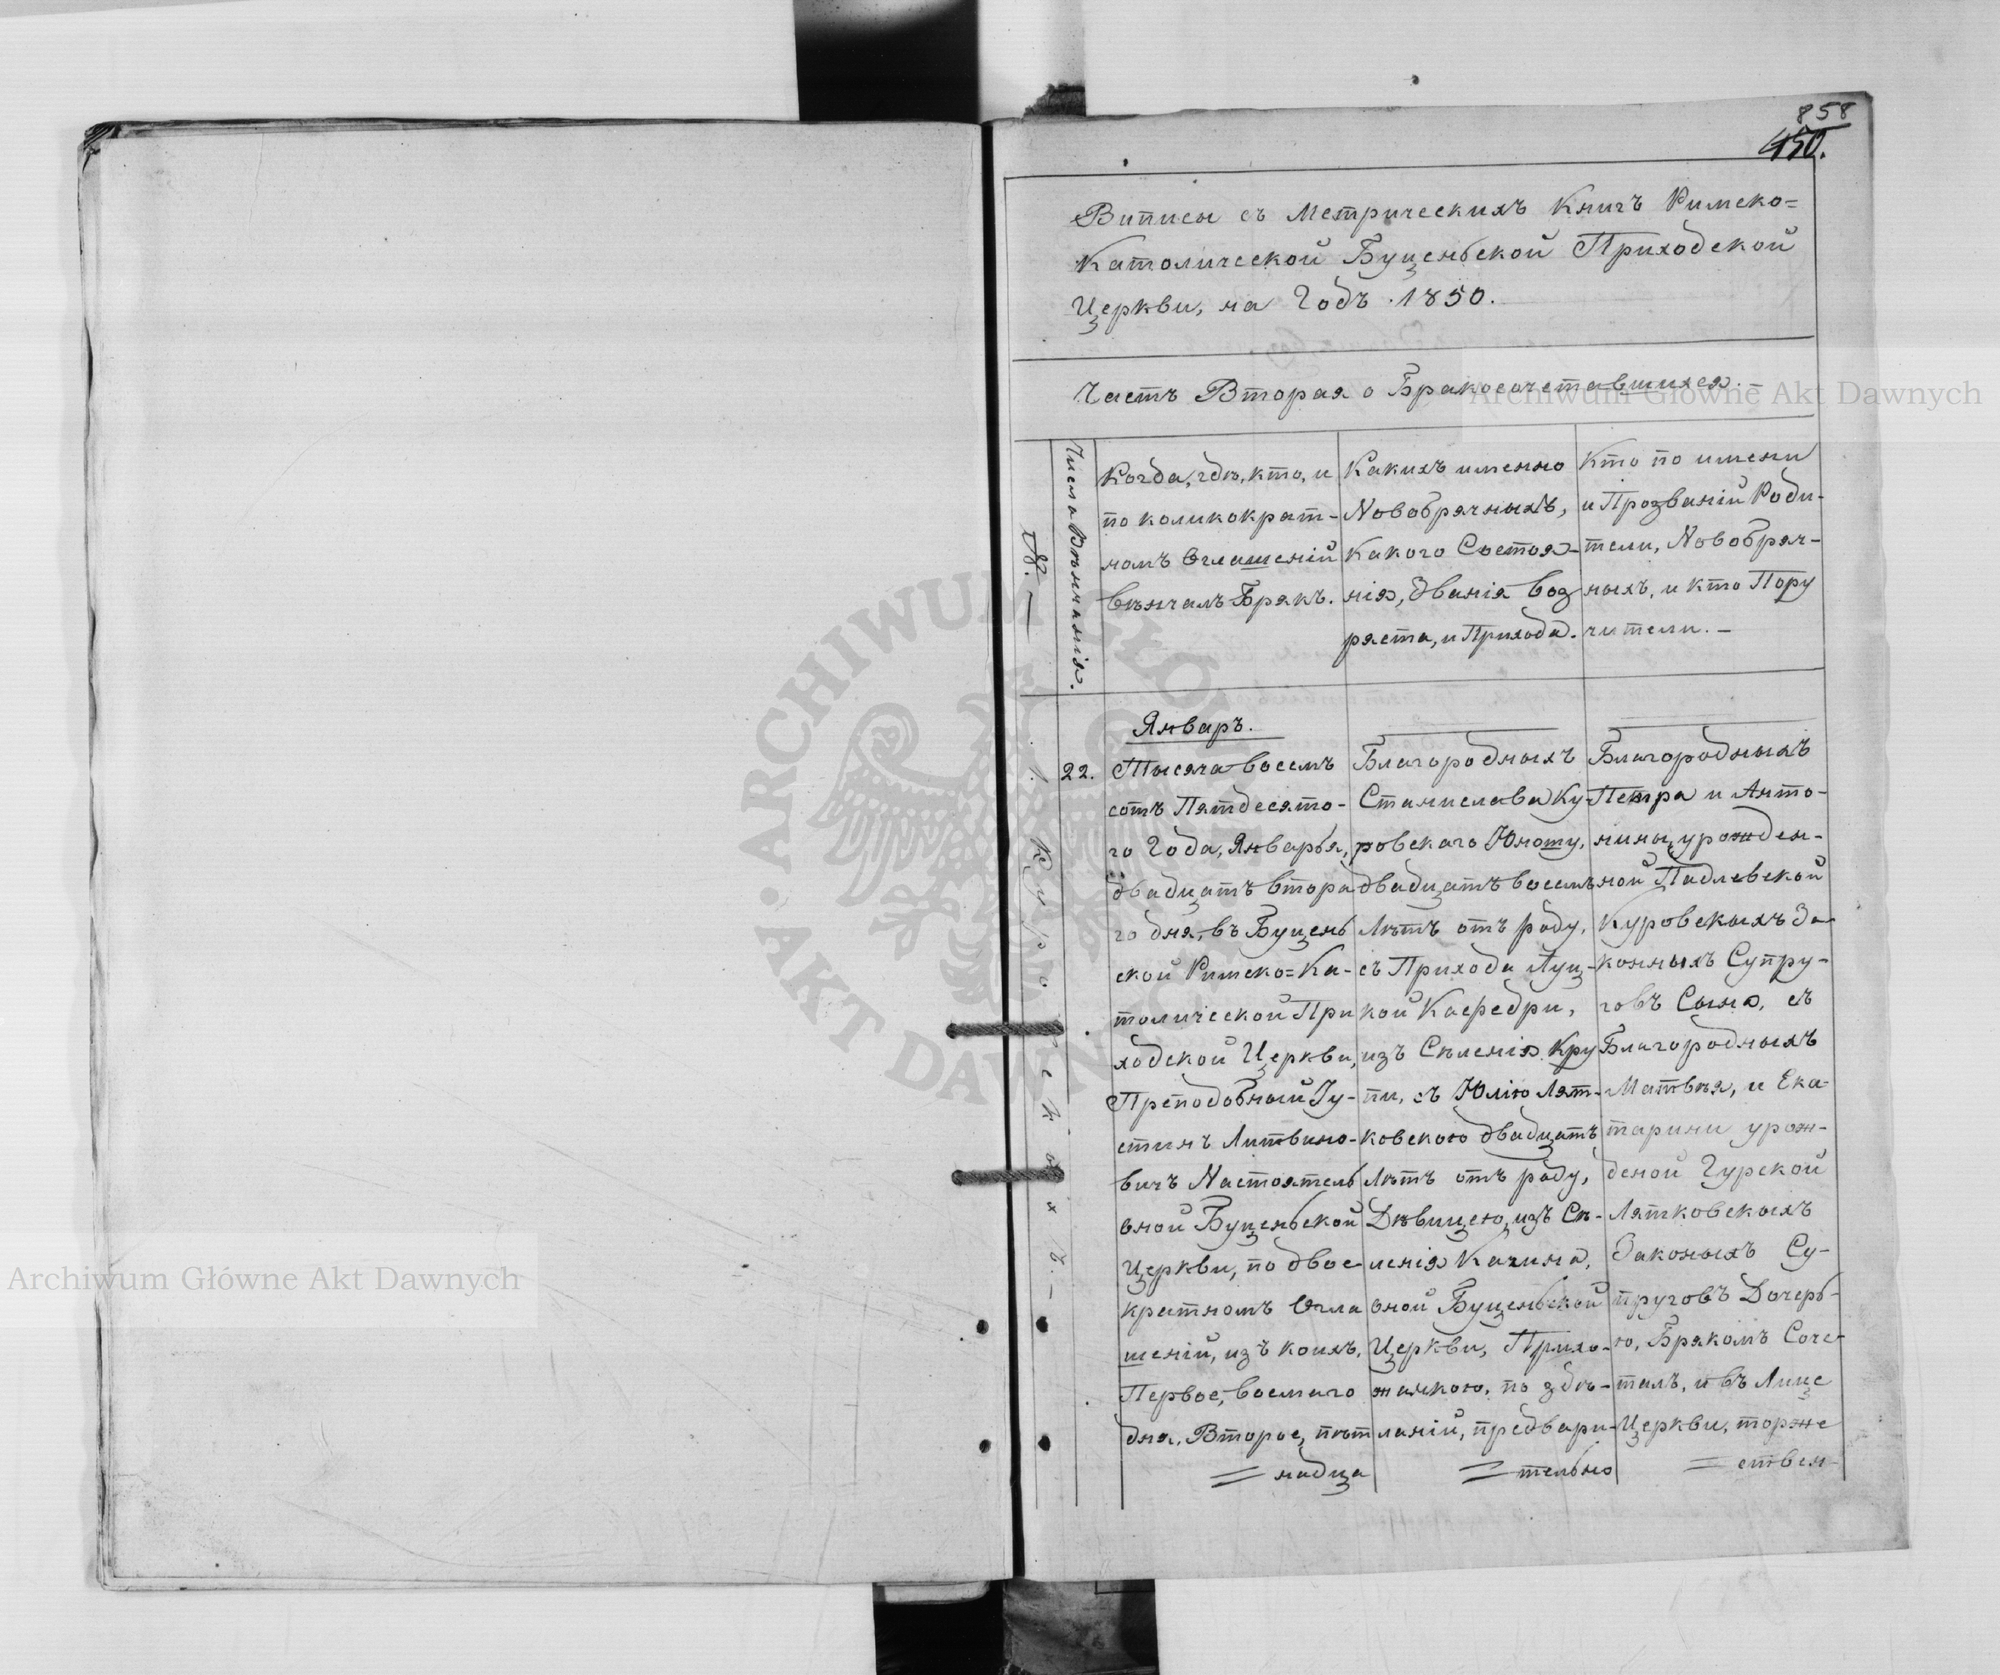 858
450.
Виписы съ Метрическихъ Книгъ Римско=
Католической Буценьской Приходской
Церкви, на Годъ 1850.
Часть Вторая о Бракосочетавшихся.
№.
Число Вѣнчанія.
Когда, гдѣ, кто, и
по коликократ-
номъ Оглашеній
вѣнчалъ Бракъ.
Какихъ именно
Новобрачныхъ,
какого Состоя-
нія, Званія воз
раста, и Прихода.
Кто по имени
и Прозваній Роди-
тели, Новобрач-
ныхъ, и кто Пору
чители.
1
Куровскихъ.
22.
Январъ.
Тысяча восемъ
сотъ Пятдесято-
го Года, Январья,
двадцатъ втора
го дня, въ Буцень
ской Римско=Ка-
толической При
ходской Церкви,
Преподобный Іу-
стинъ Литвино-
вичъ Настоятель
оной Буценьской
Церкви, по двое-
кратномъ Огла
шеній, изъ коихъ,
Первое, восмаго
дня, Второе, пѣт
надца
Благородныхъ
Станислава Ку-
ровского Юношу,
двадцатъ восемь
Лѣтъ отъ роду,
съ Прихода Луц-
кой Кафедри,
изъ Сѣленія Кру
пи, съ Юлію Лят-
ковскою двадцатъ
Лѣтъ отъ роду,
Дѣвицею, изъ Сѣ-
ленія Качина,
оной Буценьской
Церкви, Прихо-
жанкою, по здѣ-
ланій, предвари-
тельно
Благородныхъ
Петра и Анто-
нины, урожден-
ной Падлевской
Куровскыхъ За-
конныхъ Супру-
говъ Сына, съ
Благородныхъ
Матвѣя, и Ека-
тарини урож-
деной Гурской
Лятковскыхъ
Законыхъ Су-
пруговъ Дочерь-
ю, Бракомъ Соче-
талъ, и въ Лице
Церкви, торже
ствен-
Archiwum Główne Akt Dawnych
Archiwum Główne Akt Dawnych
ARCHIWUM GŁÓWNE
AKT DAWNYCH